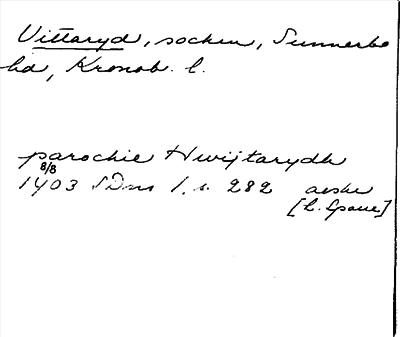 Vittaryd, socken, Sunnerbo
hd, Kronob. l.
parochie Hwijtarydh
8/8
1403 SDns 1, s. 282 avskr